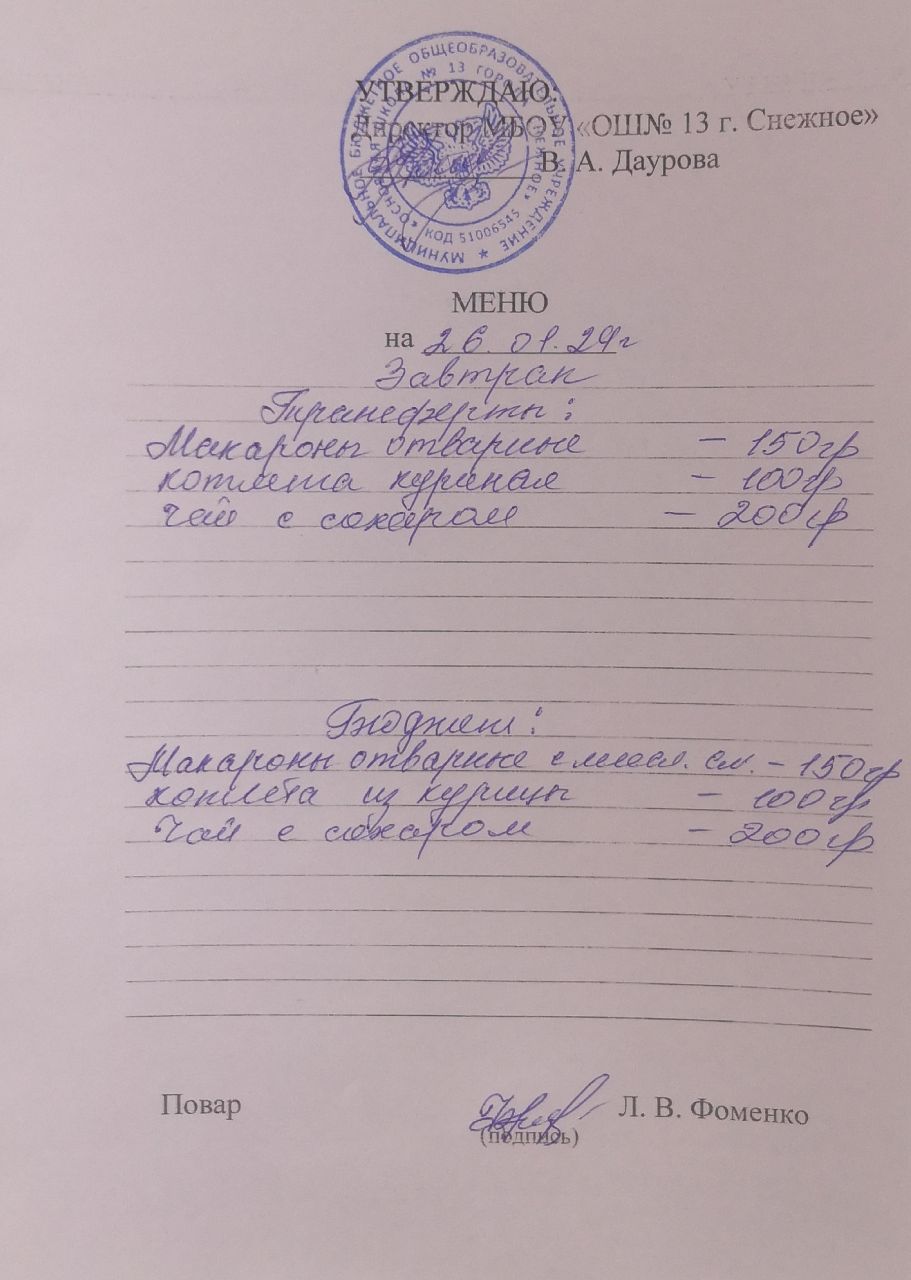 МУНИЦИПАЛЬНОЕ БЮДЖЕТНОЕ ОБЩЕОБРАЗОВАТЕЛЬНОЕ УЧРЕЖДЕНИЕ
«ОСНОВНАЯ ШКОЛА № 13 ГОРОДА СНЕЖНОЕ»
КОД 51006545
УТВЕРЖДАЮ:
Директор МБОУ «ОШ№ 13 г. Снежное»
В. А. Даурова
МЕНЮ
на 26.01.24г
Завтрак
Трансферты:
Макароны отварные – 150гр
котлета куриная – 100гр
Чай с сахаром – 200гр
Бюджет:
Макароны отварные с масл. сл. – 150гр
котлета из курицы – 100гр
Чай с сахаром – 200гр
Повар Л. В. Фоменко
(подпись)